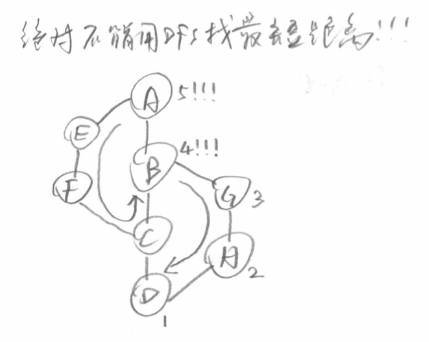 绝对不能用DFS找最短距离!!!
A 5!!!
E
B 4!!!
F
G 3
C
H 2
D
1